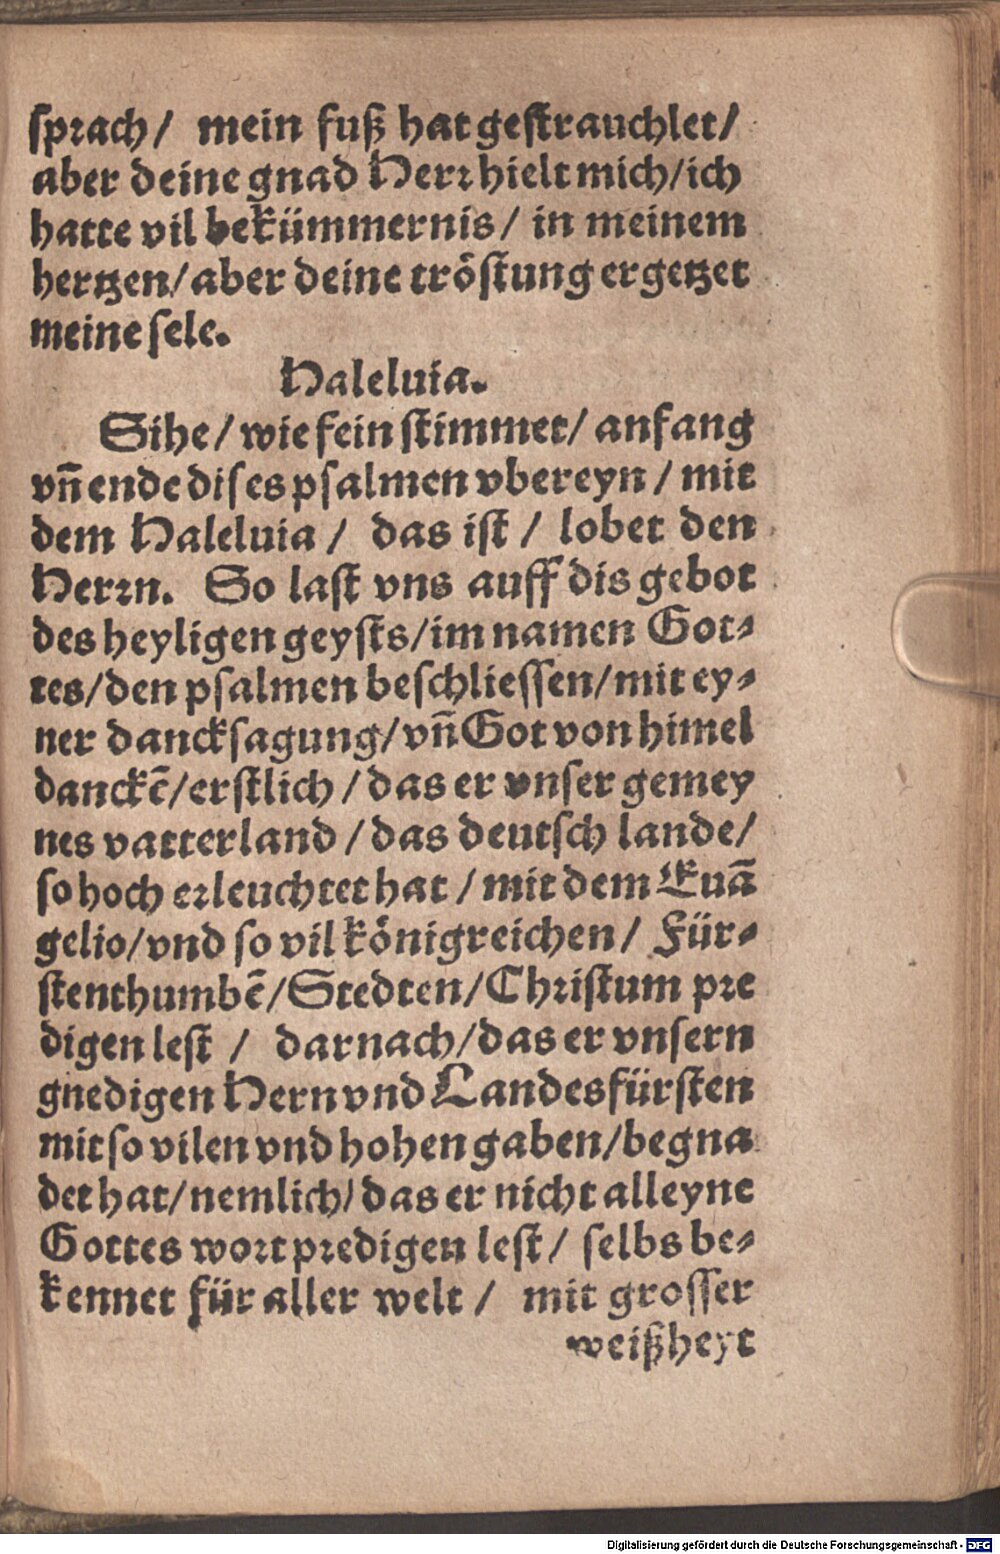 sprach/ mein fuß hat gestrauchlet/
aber deine gnad Herr hielt mich/ich
hatte vil bekümmernis/ in meinem
hertzen/aber deine tröstung ergetzet
meine sele.
Haleluia.
Sihe/wie fein stimmet/ anfang
vñ ende dises psalmen vbereyn/ mit
dem Haleluia/ das ist/ lobet den
Herrn. So last vns auff dis gebot
des heyligen geysts/im namen Got⸗
tes/den psalmen beschliessen/mit ey⸗
ner dancksagung/vñ Got von himel
danckē/erstlich/das er vnser gemey
nes vatterland/das deutsch lande/
so hoch erleuchtet hat/mit dem Euā
gelio/vnd so vil königreichen/ Für⸗
stenthumbē/Stedten/Christum pre
digen lest/ darnach/das er vnsern
gnedigen Hern vnd Landesfürsten
mit so vilen vnd hohen gaben/begna
det hat/nemlich/das er nicht alleyne
Gottes wort predigen lest/ selbs be⸗
kennet für aller welt/ mit grosser
weißheyt
Digitalisierung gefördert durch die Deutsche Forschungsgemeinschaft - DFG